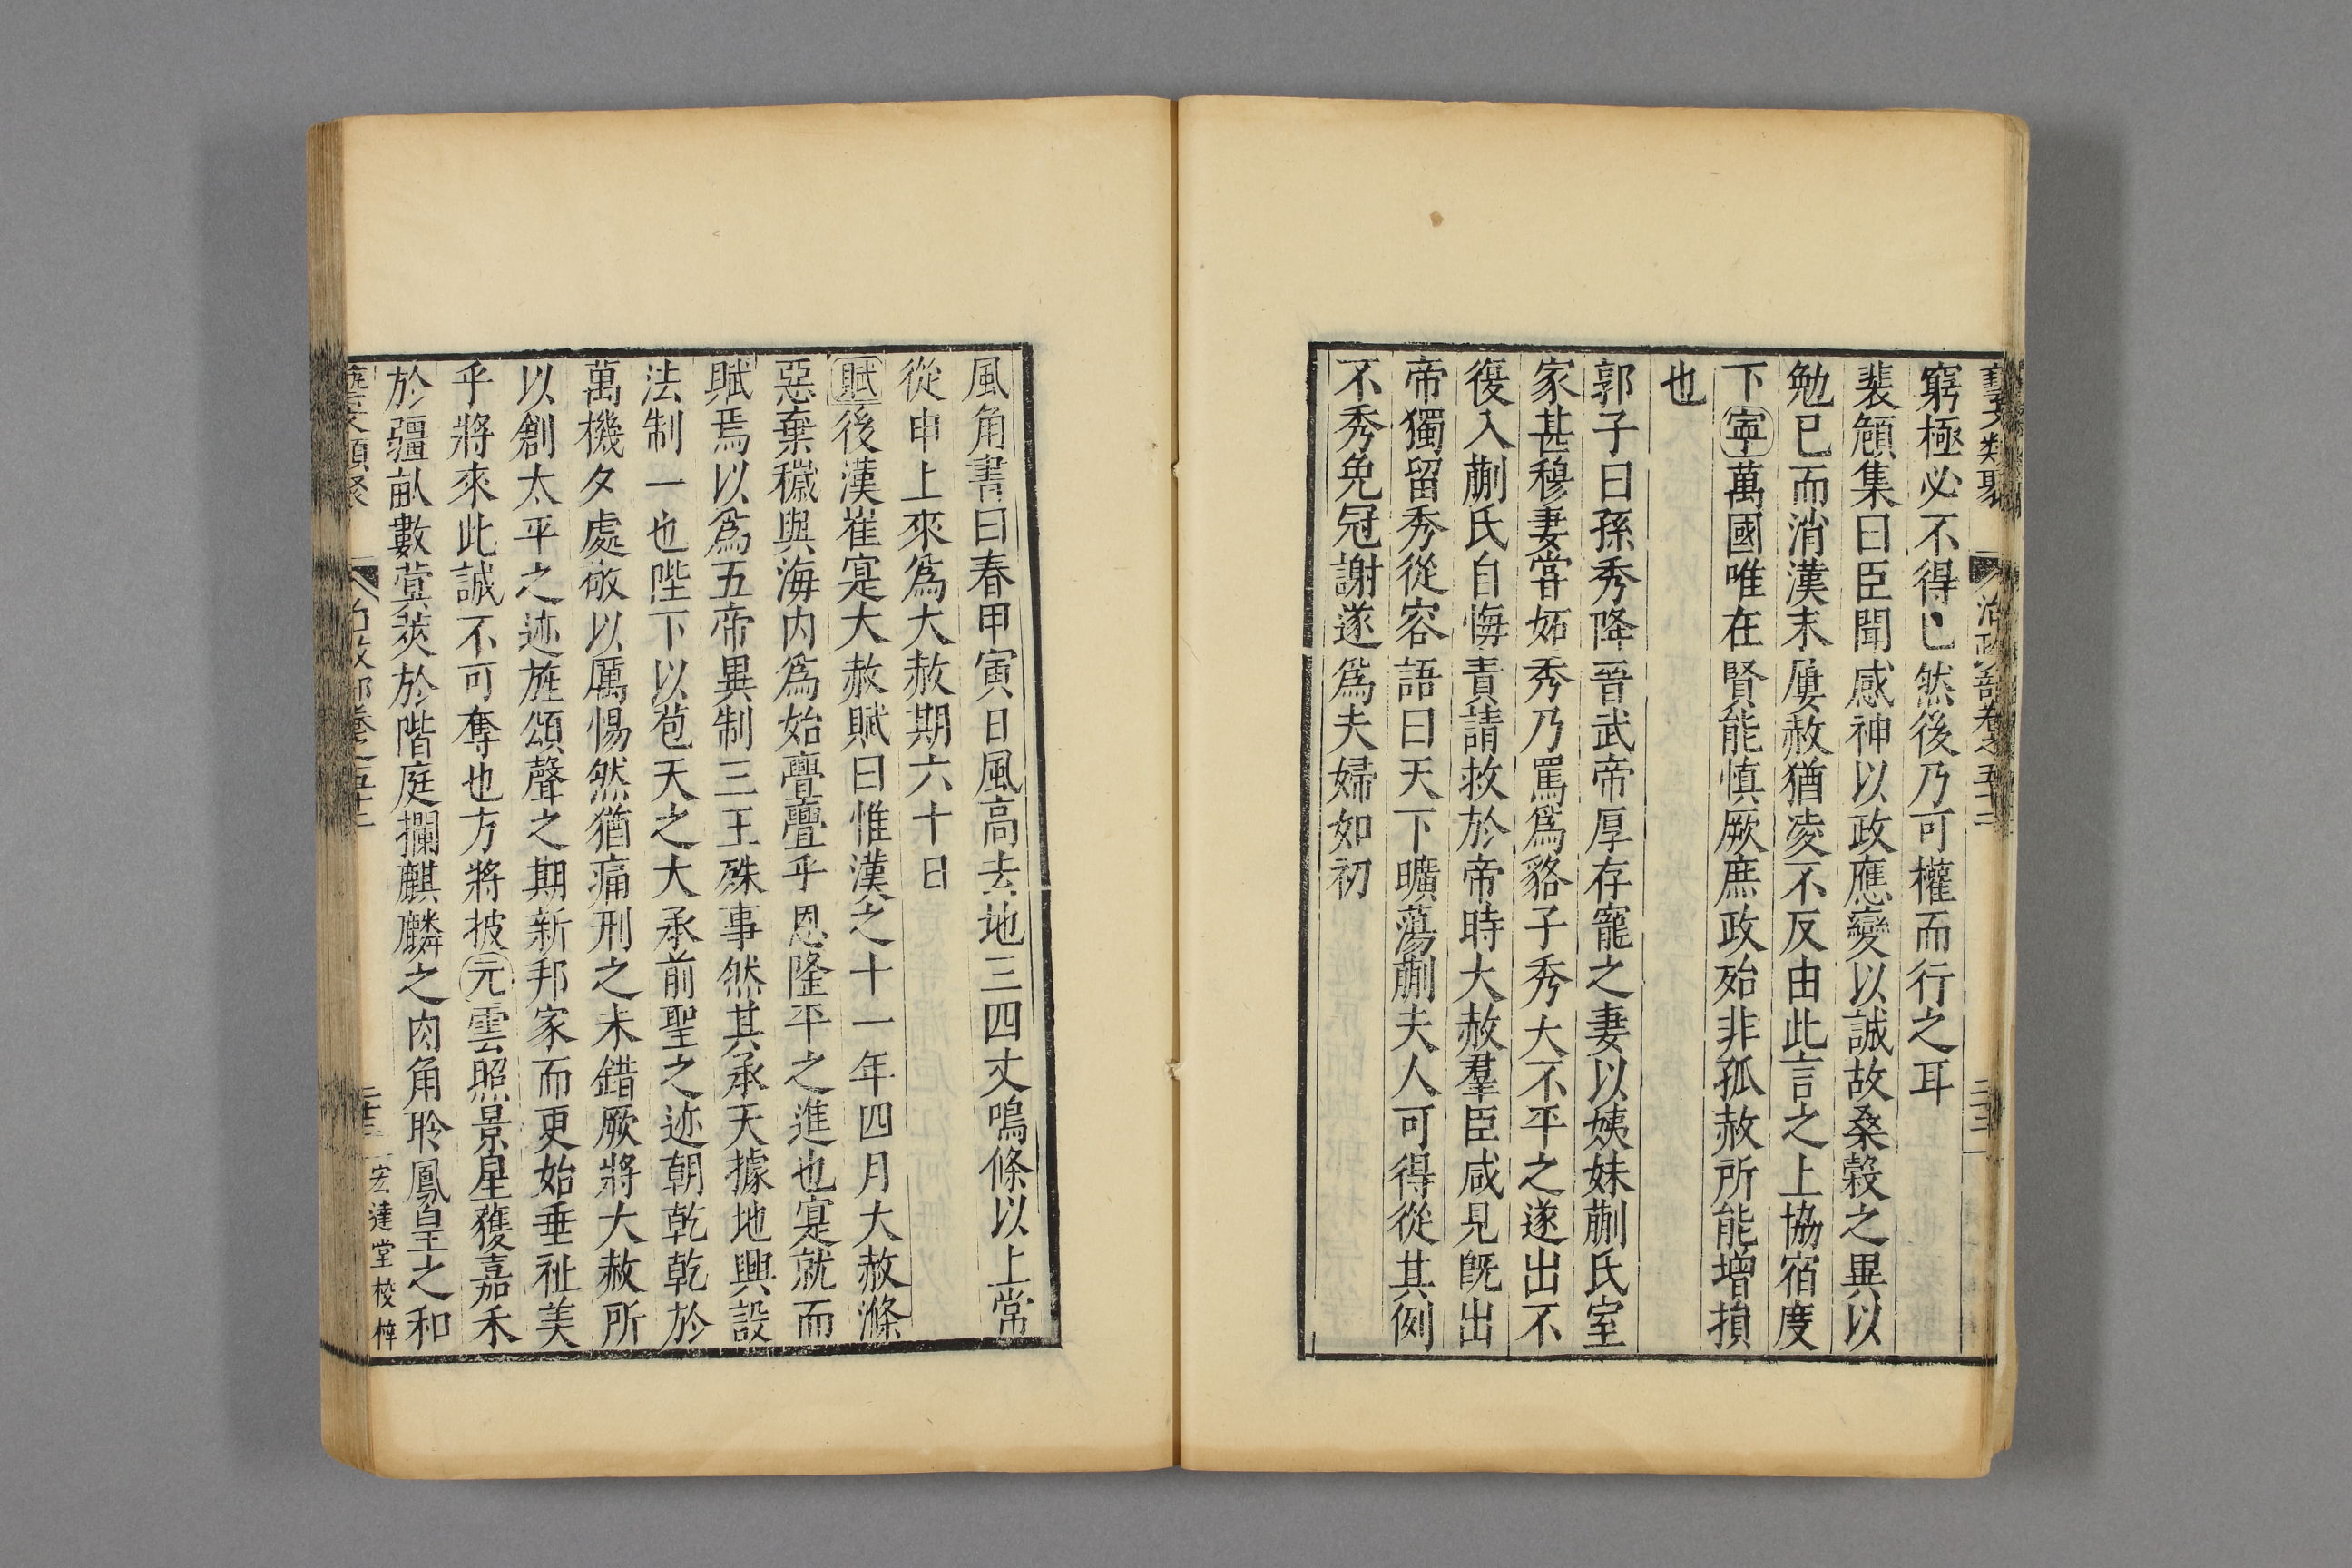 藝文類聚 治政部卷之五十二 二十三
窮極必不得已然後乃可權而行之耳
裴頠集曰臣聞感神以政應變以誠故桑穀之異以
勉已而消漢末屢赦猶凌不反由此言之上協宿度
下寧萬國唯在賢能慎厥庶政殆非孤赦所能增損
也
郭子曰孫秀降晉武帝厚存寵之妻以姨妹蒯氏室
家甚穆妻嘗妬秀乃罵爲貉子秀大不平之遂出不
復入蒯氏自悔責請救於帝時大赦羣臣咸見旣出
帝獨留秀從容語曰天下曠蕩蒯夫人可得從其例
不秀免冠謝遂爲夫婦如初
風角書曰春甲寅日風高去地三四丈鳴條以上常
從申上來爲大赦期六十日
賦後漢崔寔大赦賦曰惟漢之十一年四月大赦滌
惡棄穢與海内爲始亹亹乎恩隆平之進也寔就而
賦焉以爲五帝異制三王殊事然其承天據地興設
法制一也陛下以苞天之大承前聖之迹朝乾乾於
萬機夕處敬以厲惕然猶痛刑之未錯厥將大赦所
以創太平之迹旌頌聲之期新邦家而更始垂祉美
乎將來此誠不可奪也方將披元雲照景星獲嘉禾
於疆畝數蓂莢於階庭攔麒麟之肉角聆鳳皇之和
藝文類聚 治政部卷之五十二 二十三 宏達堂校梓